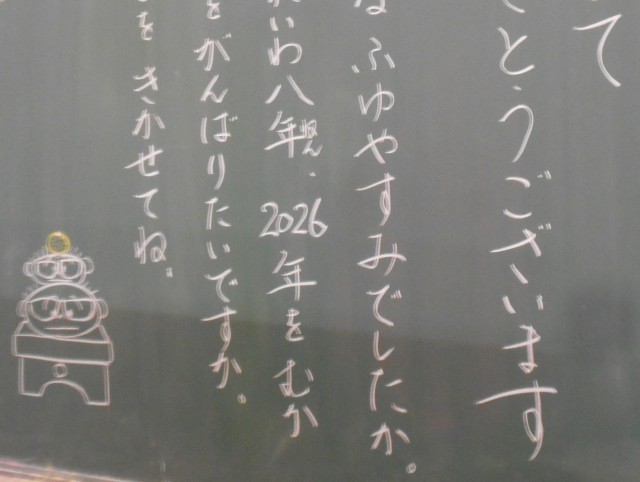 て
とうございます
な ふゆやすみでしたか。
いわ八年 2026年をむか
をがんばりたいですか。
をきかせてね。